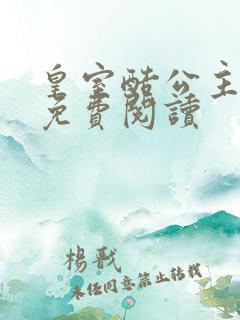 皇室酷公主
免費閱讀
楊戩
未经同意禁止转载